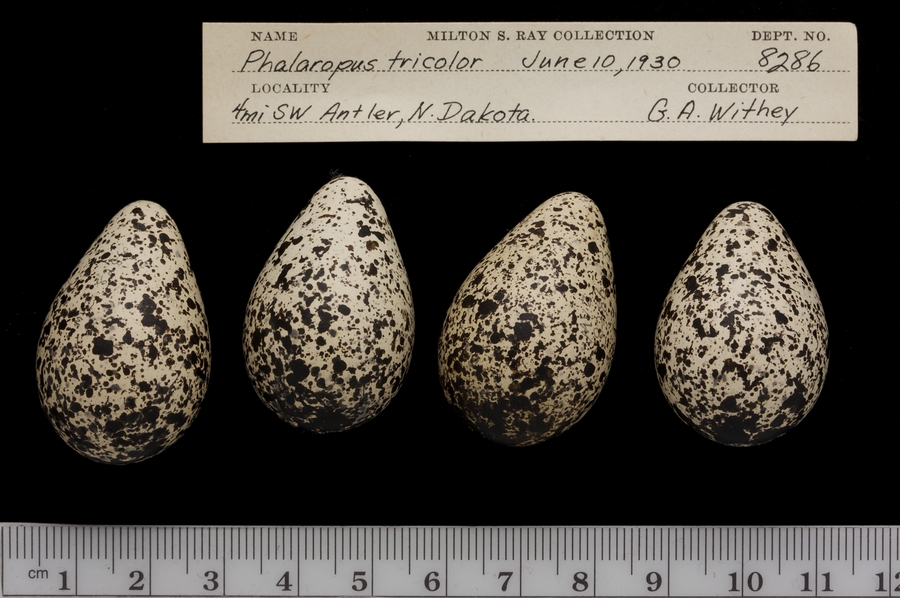 NAME MILTON S. RAY COLLECTION DEPT. NO.
Phalaropus tricolor June 10, 1930 8286
LOCALITY COLLECTOR
4mi SW Antler, N. Dakota. G. A. Withey
cm 1 2 3 4 5 6 7 8 9 10 11 12